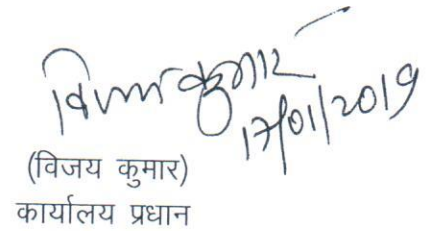 विजय कुमार
17/01/2019
(विजय कुमार)
कार्यालय प्रधान